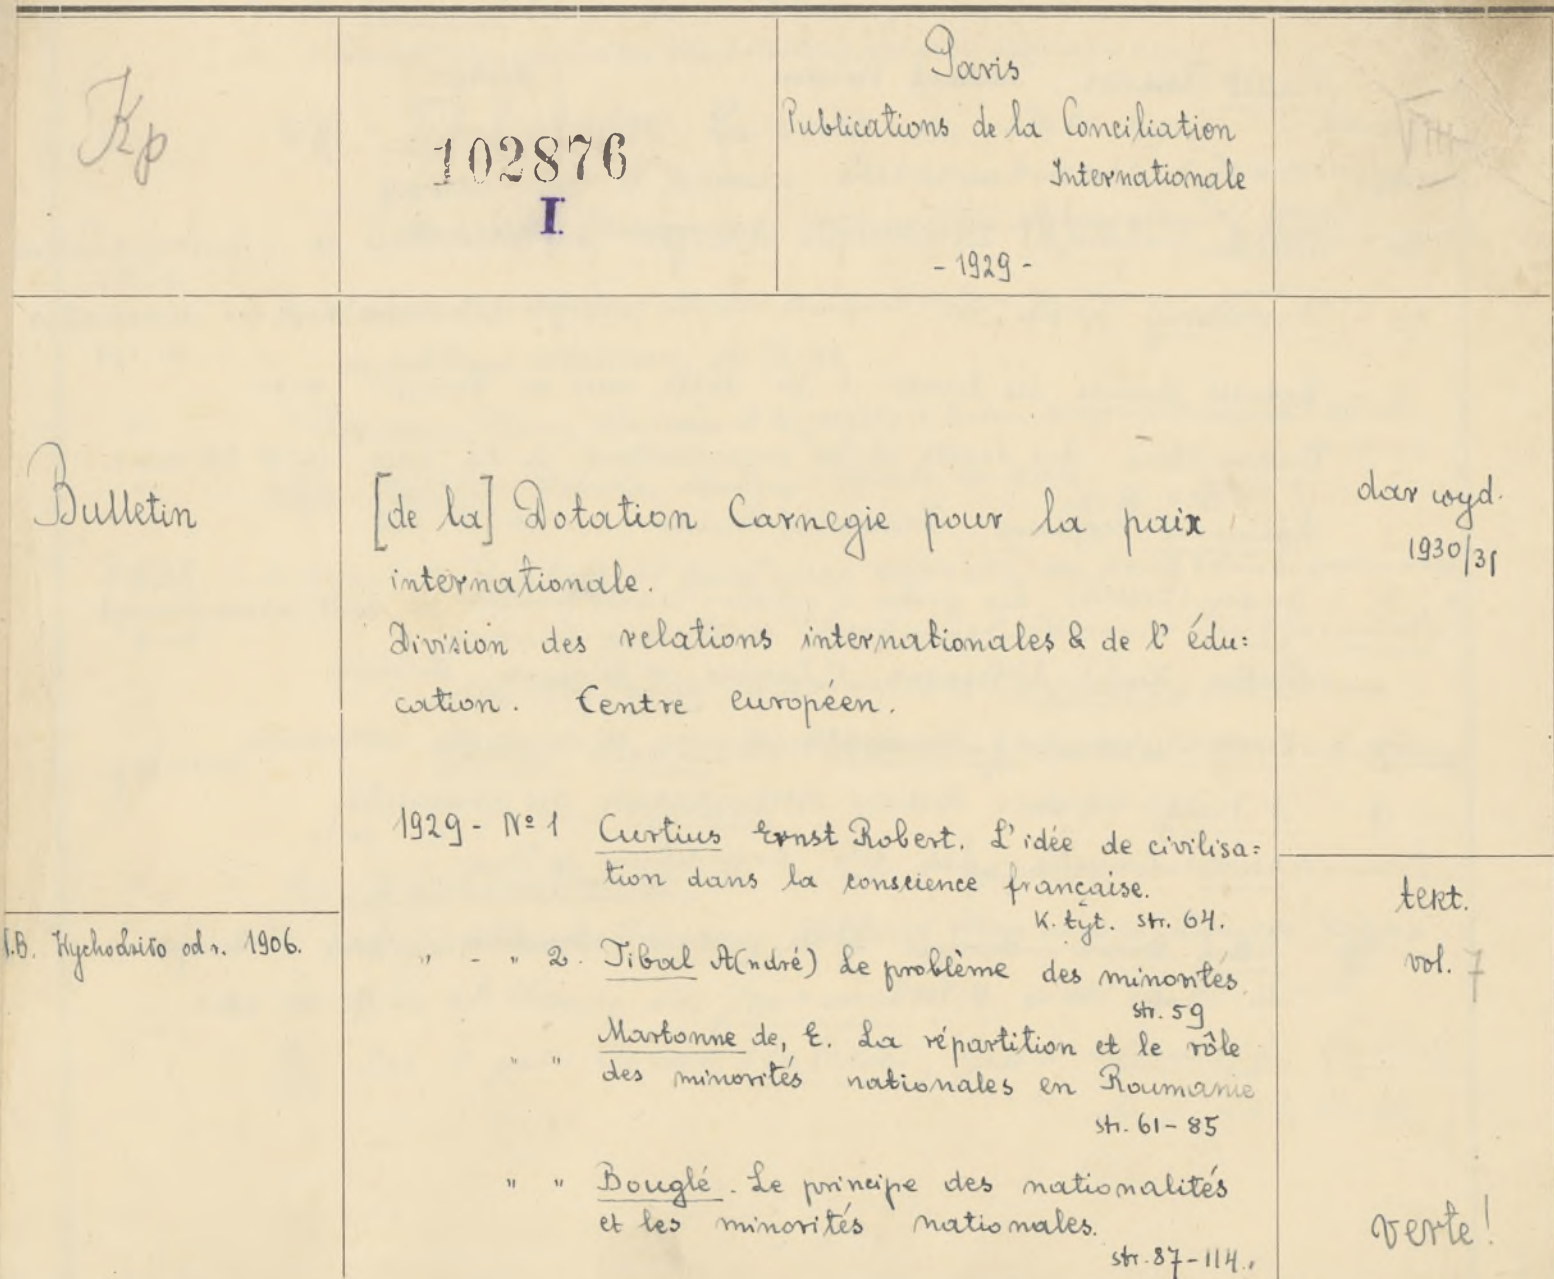 Kp
102876
I.
Paris
Publications de la Conciliation
Internationale
- 1929 -
VIII
Bulletin
[de la] Dotation Carnegie pour la paix
internationale.
Division des relations internationales & de l' édu=
cation. Centre européen.
dar wyd.
1930/31
1929 - Nº 1 Curtius Ernst Robert. L'idée de civilisa=
tion dans la conscience française.
K. tyt. str. 64.
" - " 2. Tibal A(ndré) Le problème des minorités
str. 59
" " Martonne de, E. La répartition et le rôle
des minorités nationales en Roumanie
str. 61-85
" " Bouglé. Le principe des nationalités
et les minorités nationales.
str. 87-114.
.B. Wychodziło od r. 1906.
tekt.
vol. 7
verte!